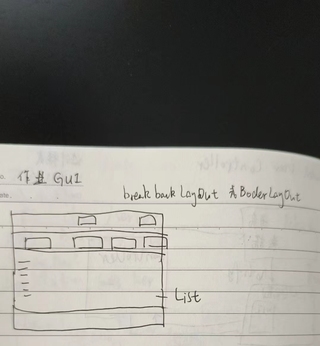 作业 GUI
break back LayOut 为 BoderLayOut
List